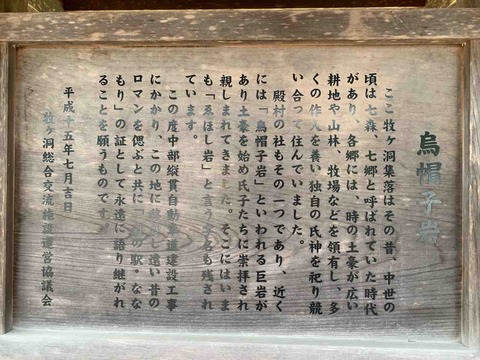 烏帽子岩
ここ牧ヶ洞集落はその昔、中世の
頃は七森、七郷と呼ばれていた時代
があり、各郷には、時の土豪が広い
耕地や山林、牧場などを領有し、多
くの作人を養い独自の氏神を祀り競
い合って住んでいました。
殿村の社もその一つであり、近く
には「烏帽子岩」といわれる巨岩が
あり土豪を始め氏子たちに崇拝され
親しまれてきました。そこにはいま
も「ゑほし岩」と言う
も残され
ています。
この度中部縦貫自動車道建設工事
にかかり、この地に
し遠い昔の
ロマンを偲ぶと共に「
の駅・なな
もり」の証として永遠に語り継がれ
ることを願うものです。
平成十五年七月吉日
牧ヶ洞総合交流施設運営協議会